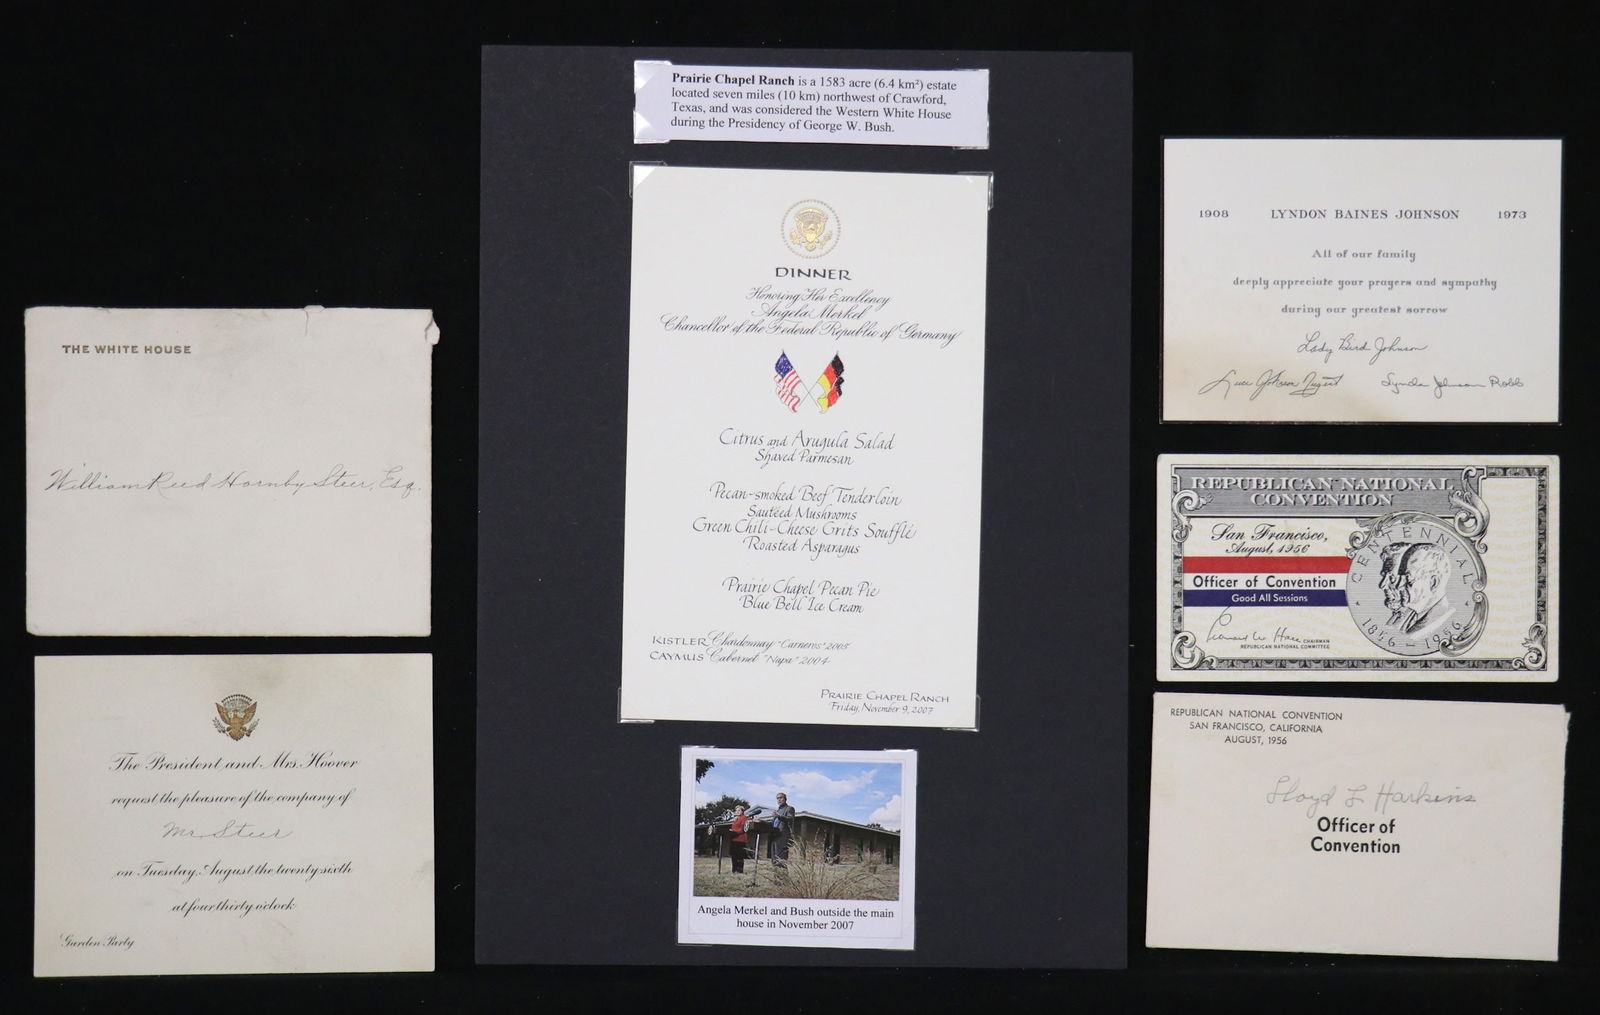 THE WHITE HOUSE
William Reed Hornby Steer, Esq.
The President and Mrs. Hoover
request the pleasure of the company of
Mr. Steer
on Tuesday, August the twenty-sixth
at four thirty o'clock
Garden Party
Prairie Chapel Ranch is a 1583 acre (6.4 km²) estate
located seven miles (10 km) northwest of Crawford,
Texas, and was considered the Western White House
during the Presidency of George W. Bush.
DINNER
Honoring Her Excellency
Angela Merkel
Chancellor of the Federal Republic of Germany
Citrus and Arugula Salad
Shaved Parmesan
Pecan-smoked Beef Tenderloin
Sautéed Mushrooms
Green Chili-Cheese Grits Soufflé
Roasted Asparagus
Prairie Chapel Pecan Pie
Blue Bell Ice Cream
KISTLER Chardonnay "Carneros" 2005
CAYMUS Cabernet "Napa" 2004
PRAIRIE CHAPEL RANCH
Friday, November 9, 2007
Angela Merkel and Bush outside the main
house in November 2007
1908 LYNDON BAINES JOHNSON 1973
All of our family
deeply appreciate your prayers and sympathy
during our greatest sorrow
Lady Bird Johnson
Luci Johnson Nugent Lynda Johnson Robb
REPUBLICAN NATIONAL
CONVENTION
San Francisco,
August, 1956
Officer of Convention
Good All Sessions
Leonard W. Hall CHAIRMAN
REPUBLICAN NATIONAL COMMITTEE
CENTENNIAL
1856 – 1956
REPUBLICAN NATIONAL CONVENTION
SAN FRANCISCO, CALIFORNIA
AUGUST, 1956
Lloyd L Harkins
Officer of
Convention